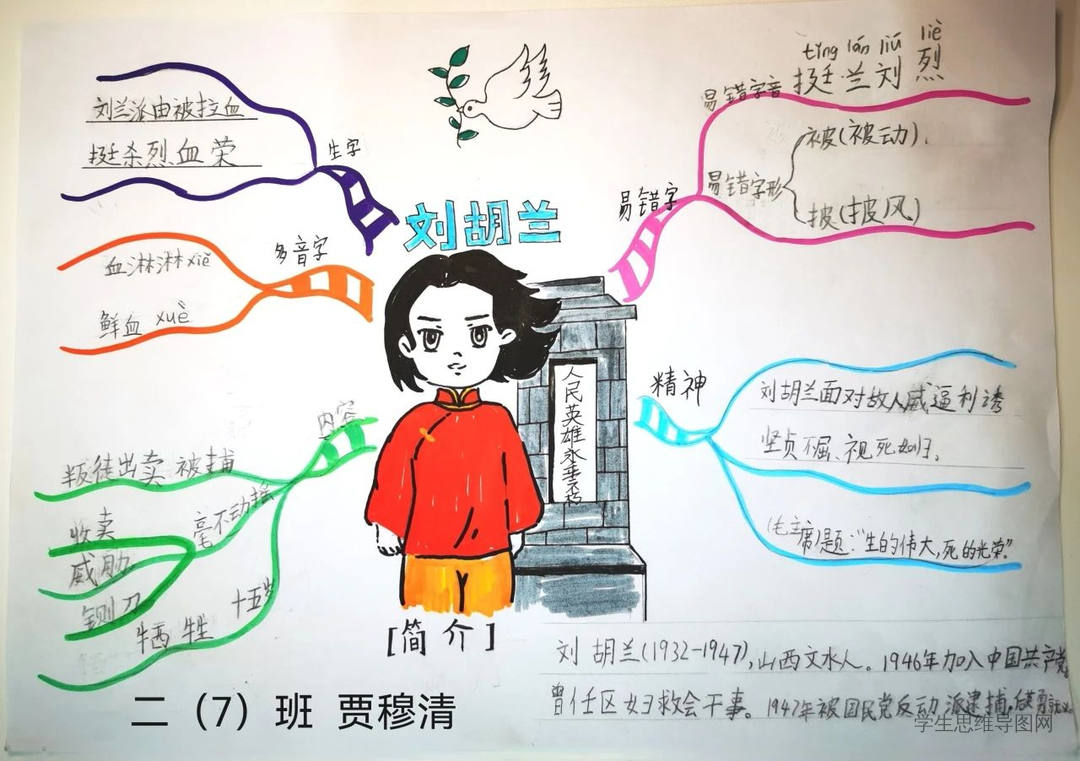 刘胡兰
生字
刘兰派由被拉血
挺杀烈血荣
多音字
血淋淋xiě
鲜血 xuè
内容
叛徒出卖 被捕
毫不动摇
收卖
威胁
铡刀
牺牲
十五岁
易错字
易错字音
tǐng lán liú liè
挺·兰刘烈
易错字形
被(被动).
披(披风)
精神
刘胡兰面对敌人威逼利诱
坚贞不屈、视死如归.
(毛主席)题:“生的伟大,死的光荣”.
人民英雄永垂不朽
[简介]
刘胡兰(1932-1947),山西文水人。1946年加入中国共产党
曾任区妇救会干事。1947年被国民党反动派逮捕。
二（7）班 贾穆清
学生思维导图网